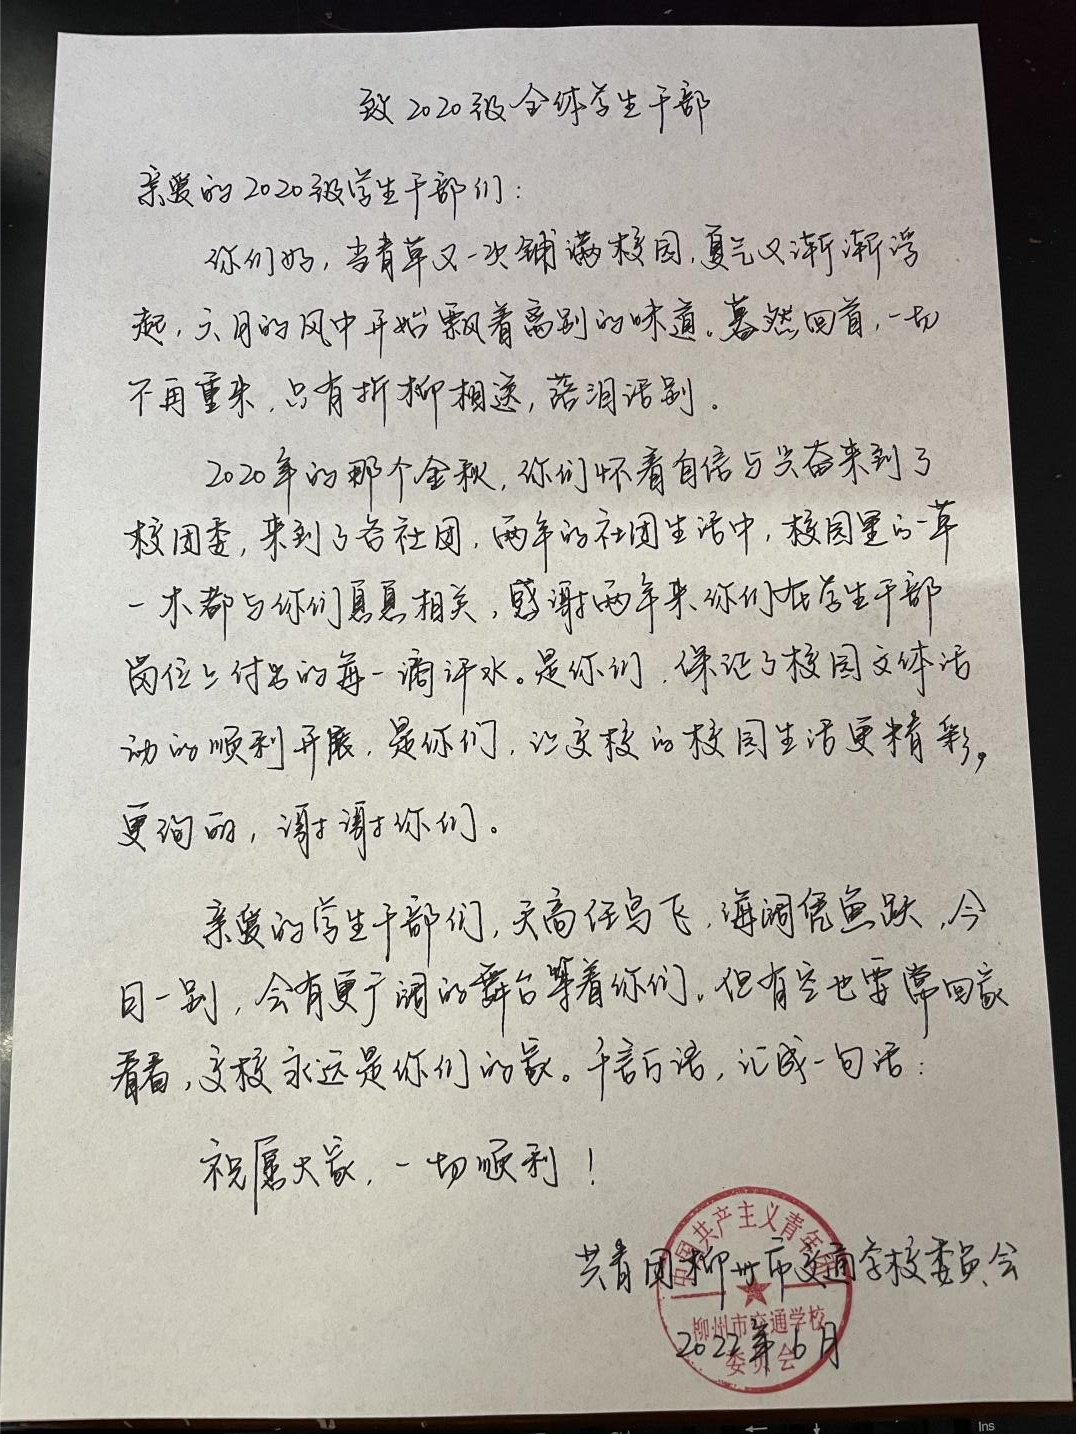 致2020级全体学生干部
亲爱的2020级学生干部们：
你们好，当青草又一次铺满校园，夏气又渐渐浮
起，六月的风中开始飘着离别的味道。蓦然回首，一切
不再重来，只有折柳相送，落泪话别。
2020年的那个金秋，你们怀着自信与兴奋来到了
校团委，来到了各社团，两年的社团生活中，校园里的一草
一木都与你们息息相关，感谢两年来你们在学生干部
岗位上付出的每一滴汗水。是你们，保证了校园文体活
动的顺利开展，是你们，让交校的校园生活更精彩，
更绚丽，谢谢你们。
亲爱的学生干部们，天高任鸟飞，海阔凭鱼跃，今
日一别，会有更广阔的舞台等着你们。但有空也要常回家
看看，交校永远是你们的家。千言万语，汇成一句话：
祝愿大家，一切顺利！
共青团柳州市交通学校委员会
2022年6月
中国共产主义青年团
柳州市交通学校
委员会
Ins